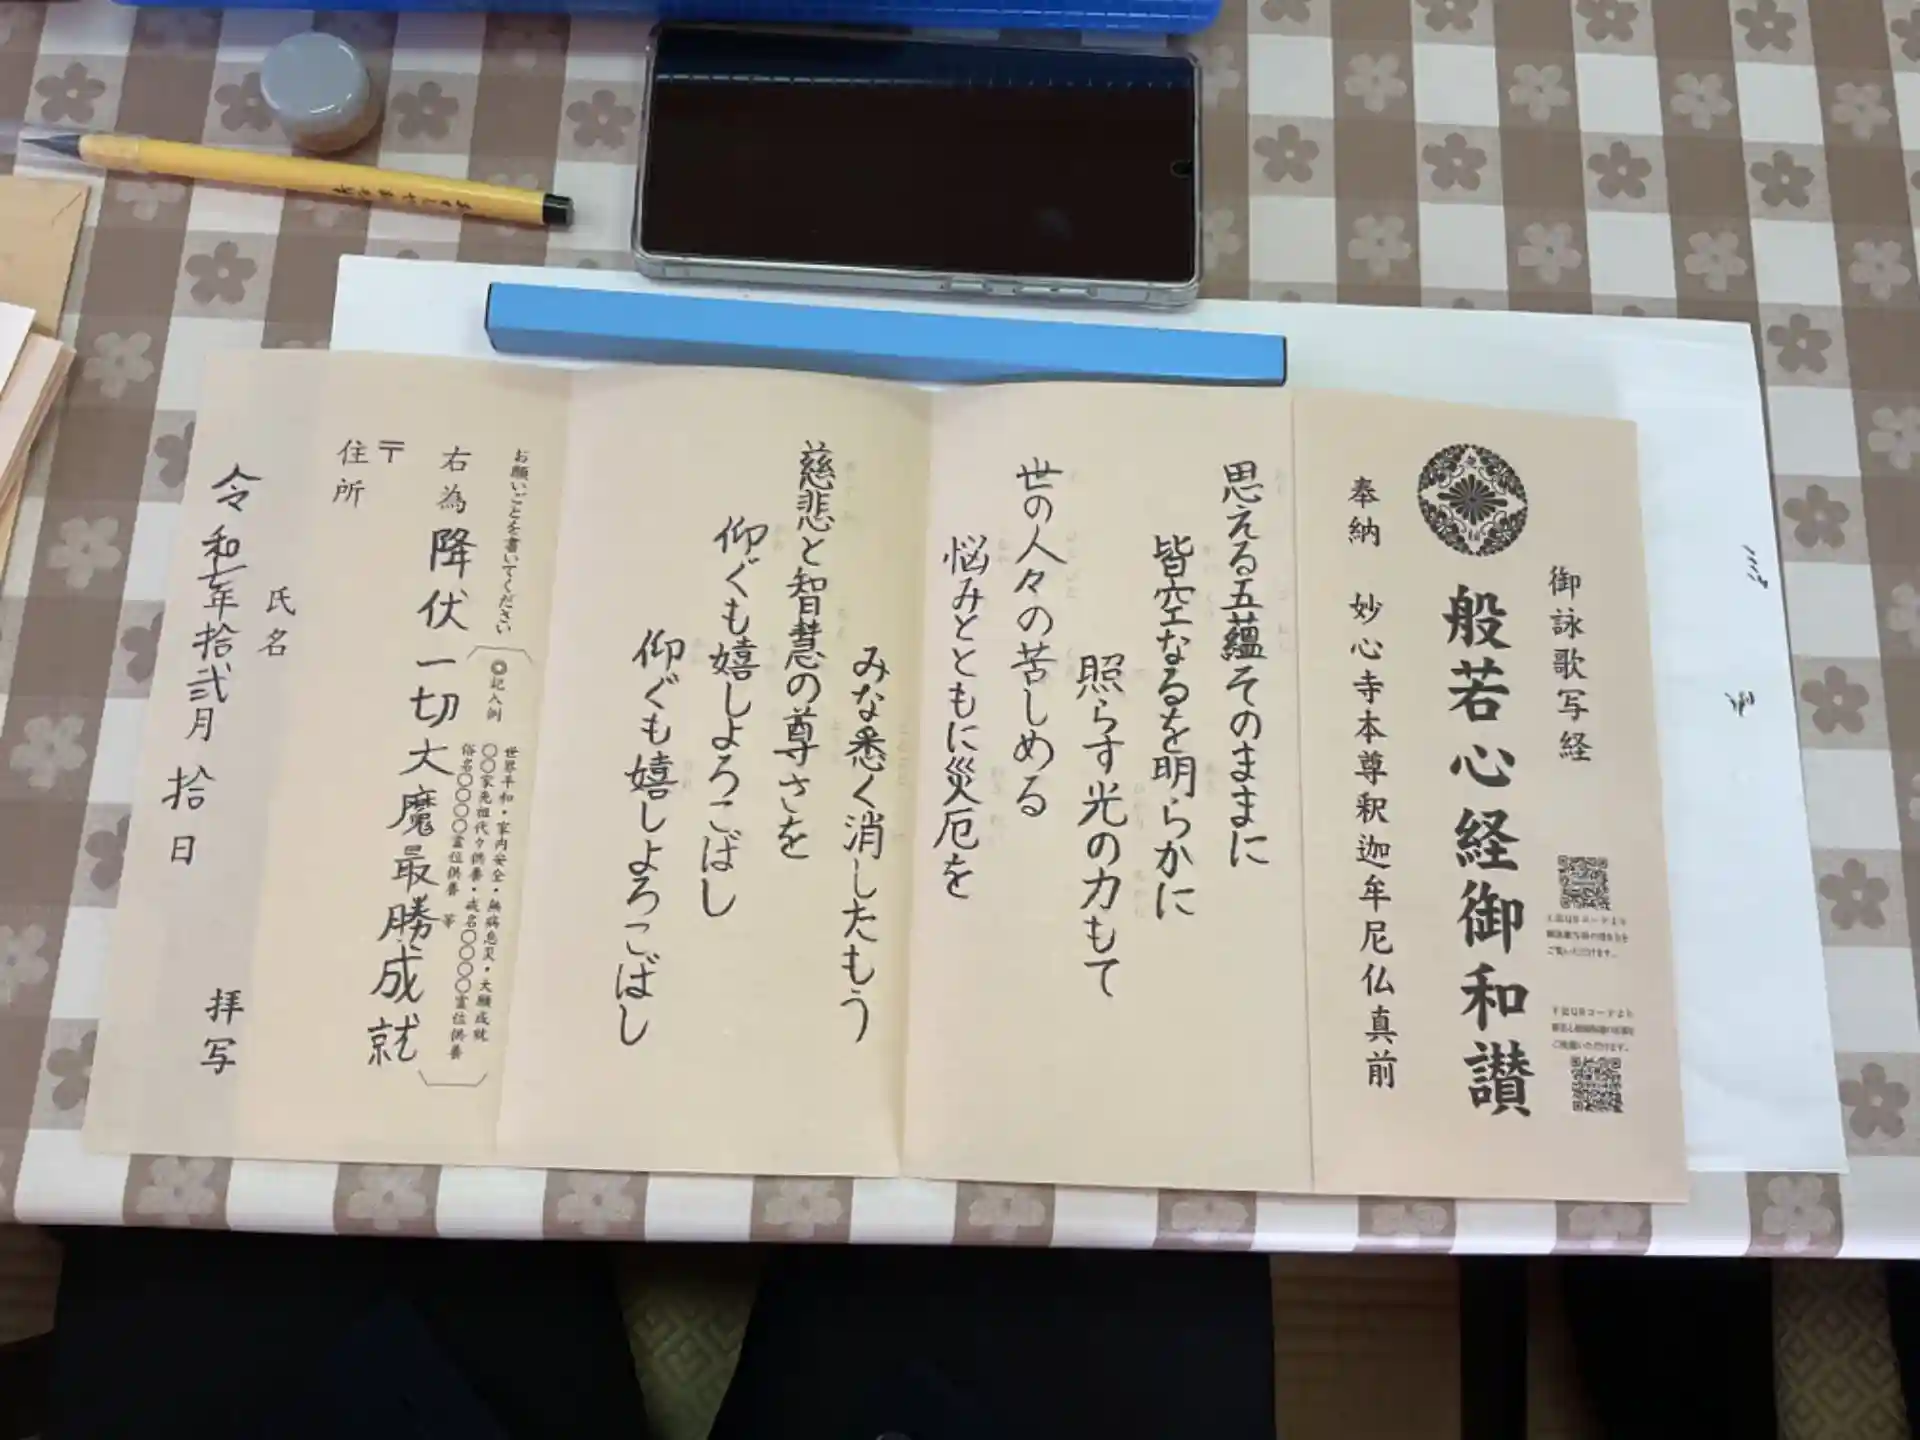 御詠歌写経
般若心経御和讃
奉納　妙心寺本尊釈迦牟尼仏真前
思える五蘊そのままに
皆空なるを明らかに
照らす光の力もて
世の人々の苦しめる
悩みとともに災厄を
みな悉く消したもう
慈悲と智慧の尊さを
仰ぐも嬉しよろこばし
仰ぐも嬉しよろこばし
お願いごとを書いてください
◎記入例
世界平和・家内安全・無病息災・大願成就
〇〇家先祖代々供養・戒名〇〇〇〇霊位供養
俗名〇〇〇〇霊位供養　等
右為　降伏一切大魔最勝成就
〒
住所
氏名
令和七年拾弐月拾日
拝写